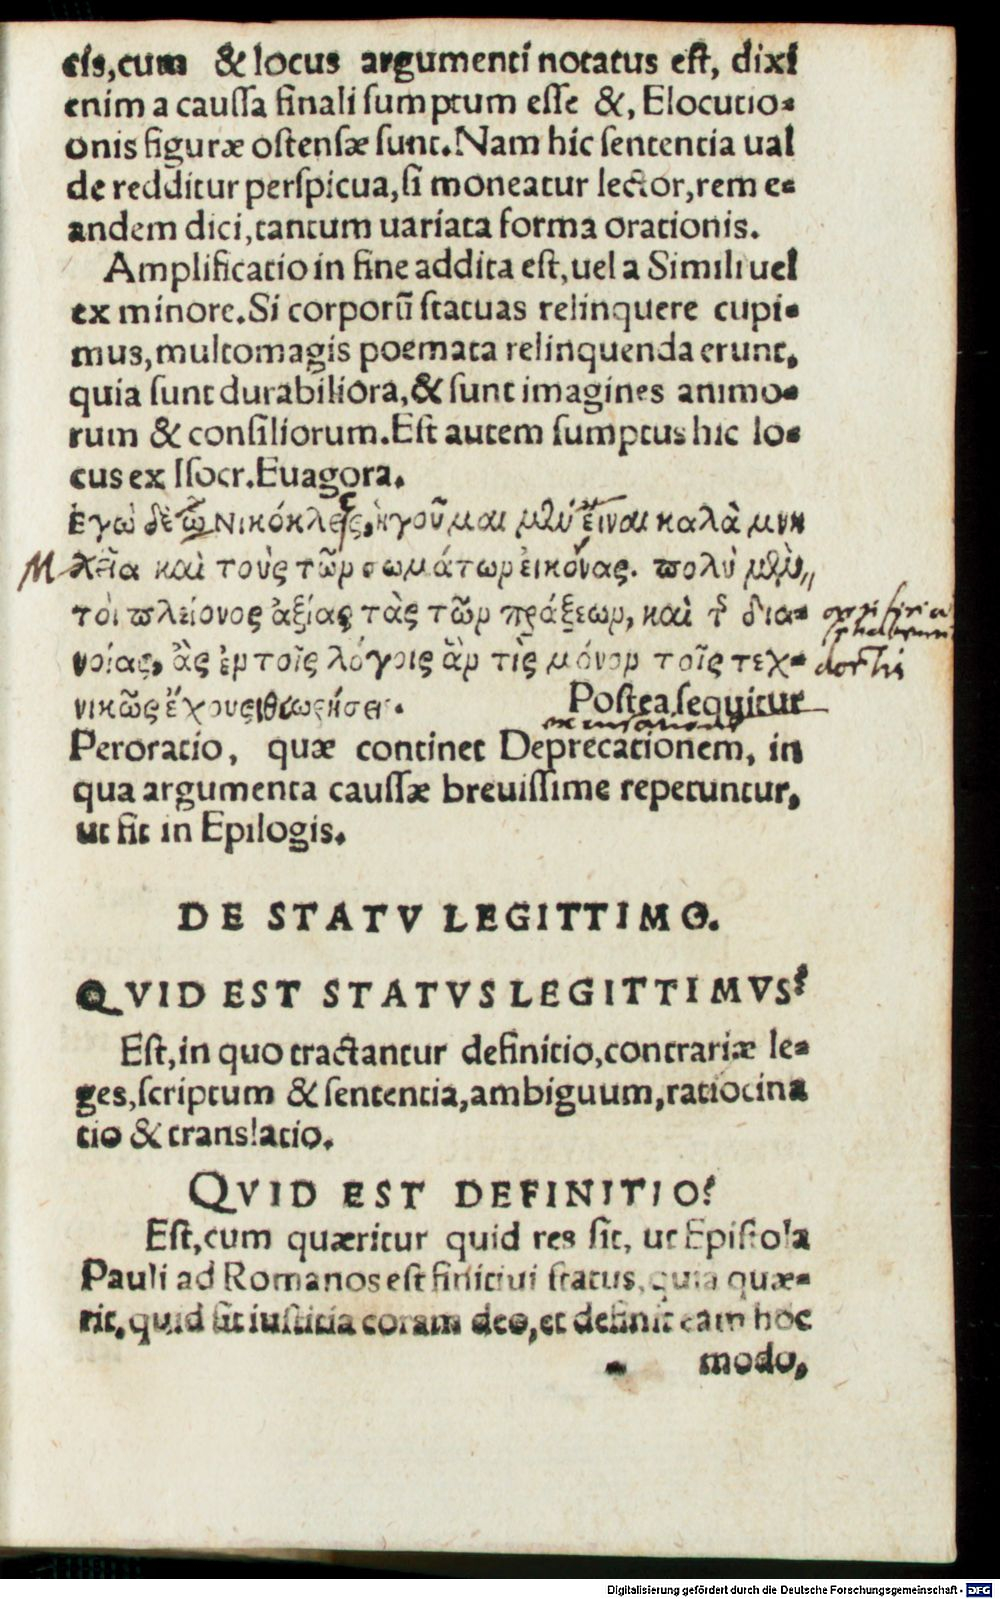 cis,cum & locus argumenti notatus est, dixi
enim a caussa finali sumptum esse &, Elocutio⸗
onis figuræ ostensæ sunt. Nam hic sententia ual
de redditur perspicua, si moneatur lector, rem e⸗
andem dici, tantum uariata forma orationis.
Amplificatio in fine addita est, uel a Simili uel
ex minore. Si corporũ statuas relinquere cupi⸗
mus, multomagis poemata relinquenda erunt,
quia sunt durabiliora, & sunt imagines animo⸗
rum & consiliorum. Est autem sumptus hic lo⸗
cus ex Isocr. Euagora.
Εγὼ δὲ ὦ Νικόκλεες, ἡγοῦμαι μὲν εἶναι καλὰ μνη
M
μεῖα καὶ τοὺς τῶν σωμάτων εἰκόνας. πολὺ μὲν
τοι πλείονος ἀξίας τὰς τῶν πράξεων, καὶ τ͂ δια⸗
νοίας, ἃς ἐν τοῖς λόγοις ἂν τὶς μόνον τοῖς τεχ⸗
νικῶς ἔχουσι θεωρήσει. Postea sequitur
Peroratio, quæ continet Deprecationem, in
qua argumenta caussæ breuissime repetuntur,
ut fit in Epilogis.
DE STATV LEGITTIMO.
QVID EST STATVS LEGITTIMVS?
Est, in quo tractantur definitio, contrariæ le⸗
ges, scriptum & sententia, ambiguum, ratiocina
tio & translatio.
QVID EST DEFINITIO?
Est, cum quæritur quid res sit, ut Epistola
Pauli ad Romanos est finitiui status, quia quæ⸗
rit, quid sit iustitia coram deo, et definit eam hoc
modo,
Digitalisierung gefördert durch die Deutsche Forschungsgemeinschaft - DFG